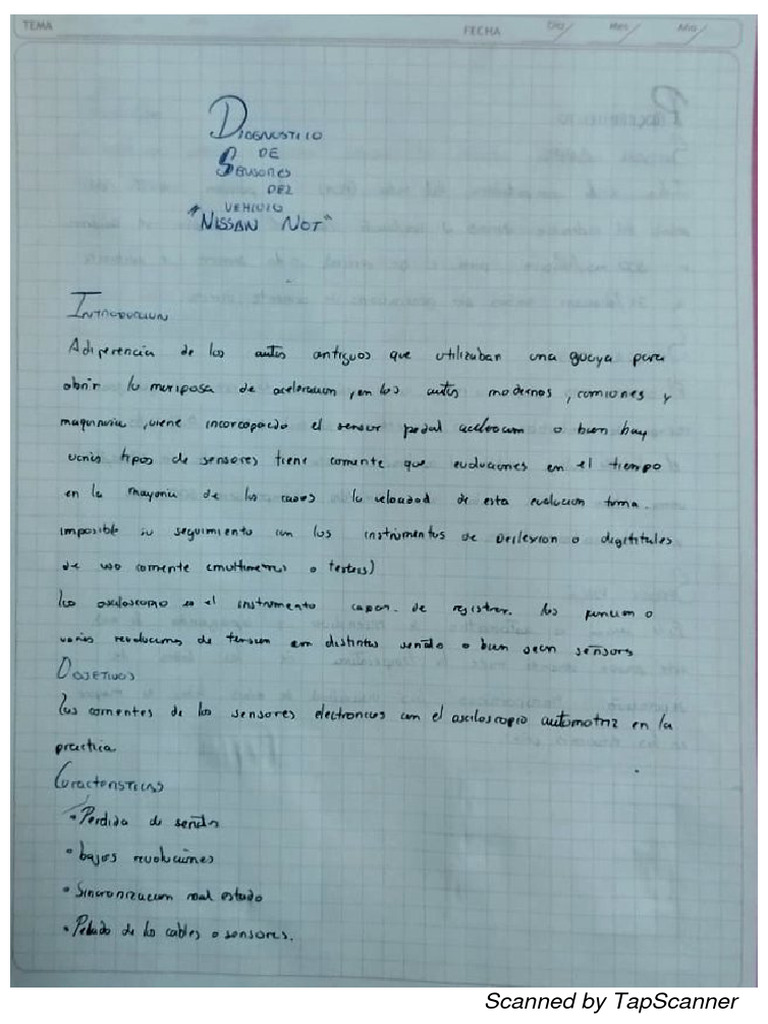 TEMA
FECHA Día/ Mes/ Año/
DIAGNOSTICO
DE
SENSORES
DEL
VEHICULO
"NISSAN NOT"
INTRODUCCION
A diferencia de los autos antiguos que utilizaban una guaya para
abrir la mariposa de aceleracion, en los autos modernos, camiones y
maquinaria, viene incorcoporado el sensor pedal o bien hay
varios tipos de sensores tiene corriente que evoluciones en el tiempo
en la mayoria de los casos la velocidad de esta evolucion toma.
imposible su seguimiento con los instrumentos de Deflexion o digititales
de uso corriente (multimetros o testers)
los osciloscopio es el instrumento capan. de registrar. los o
varias revoluciones de tension em distintos señals o bien sean señsors
OBJETIVOS
Las corrientes de los sensores electronicos con el osciloscopio automotriz en la
practica
Caracteristicas
• Perdida de señals
• bajos revoluciones
• Sincronizacion mal estado
• Pelado de los cables o sensores.
Scanned by TapScanner